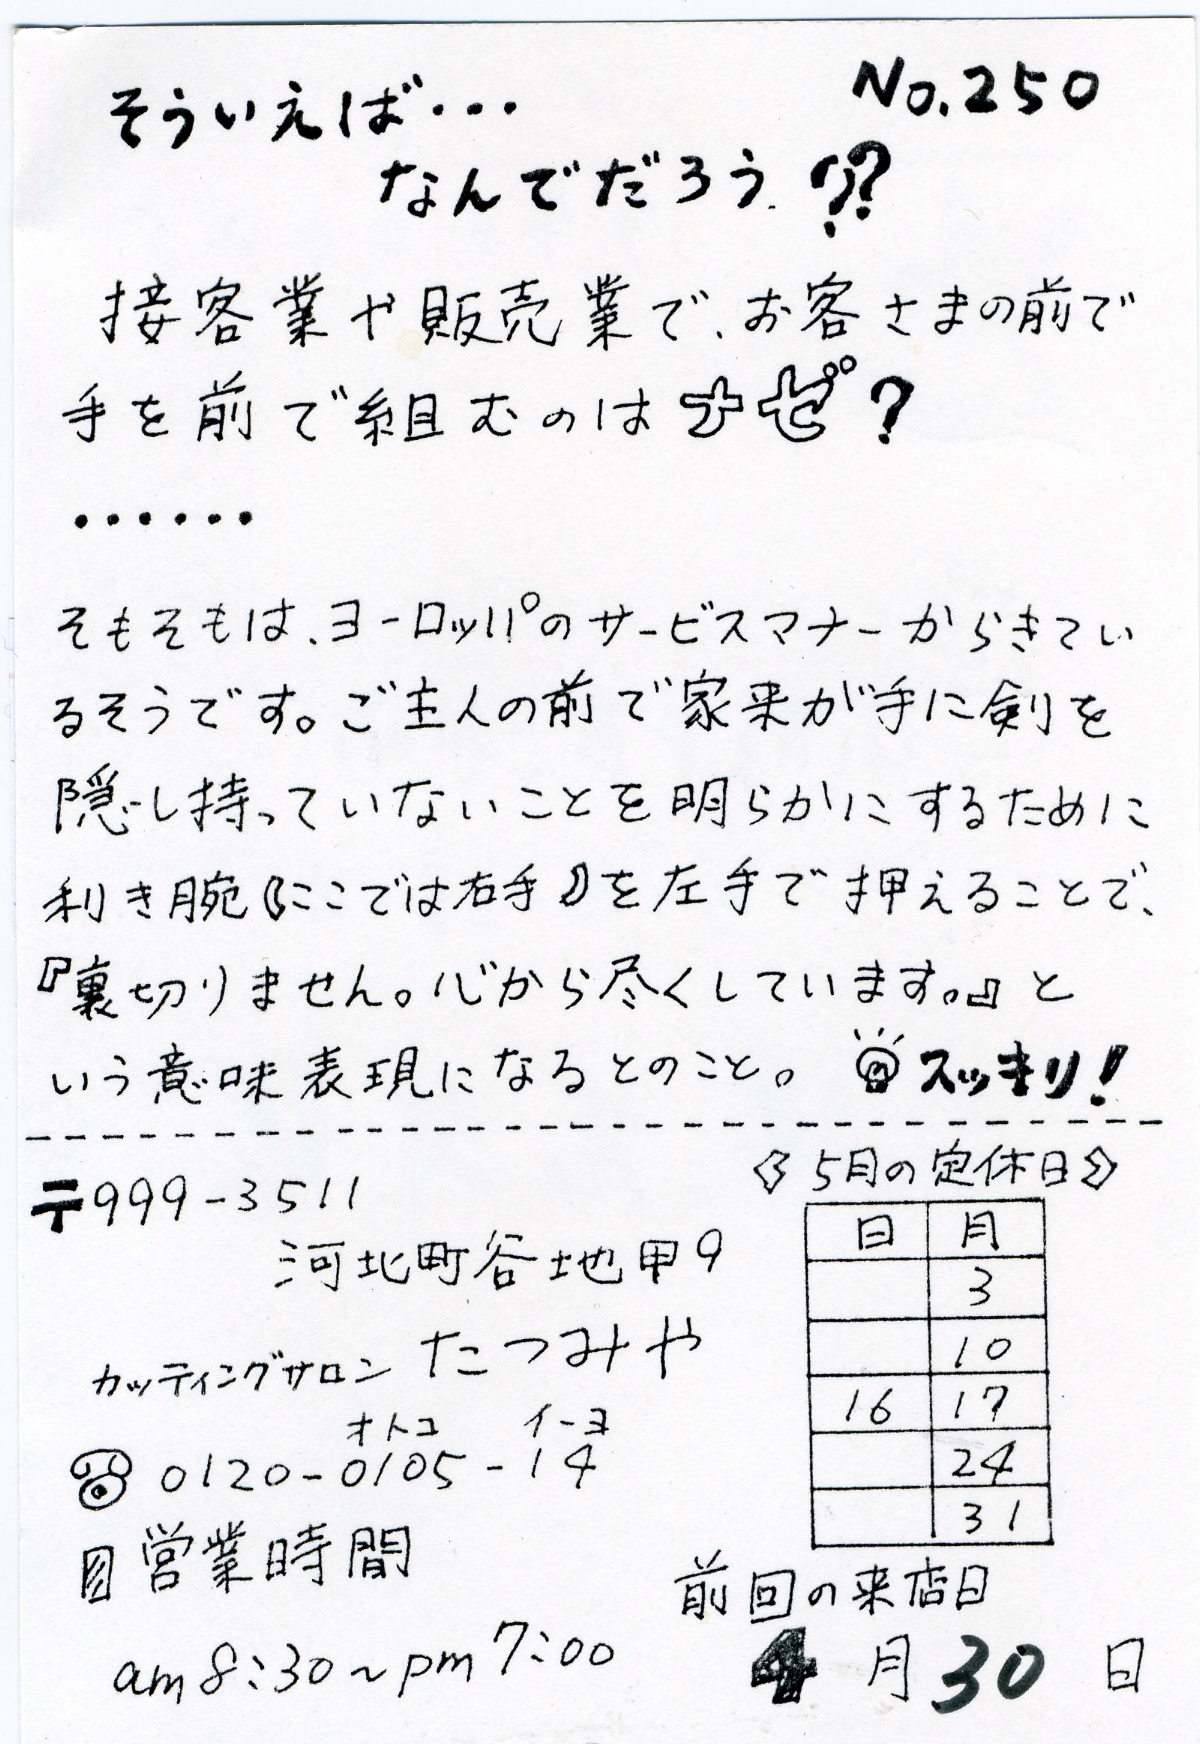 No.250
そういえば・・・
なんでだろう.??
接客業や販売業で、お客さまの前で
手を前で組むのはナゼ?
・・・・・・
そもそもは、ヨーロッパのサービスマナーからきてい
るそうです。ご主人の前で家来が手に剣を
隠し持っていないことを明らかにするために
利き腕《ここでは右手》を左手で押えることで、
『裏切りません。心から尽くしています。』と
いう意味表現になるとのこと。 スッキリ!
〒999-3511
河北町谷地甲9
カッティングサロン たつみや
オトコ イーヨ
0120-0105-14
営業時間
am8:30~pm7:00
《5月の定休日》
日 月
3
10
16 17
24
31
前回の来店日
4月30日